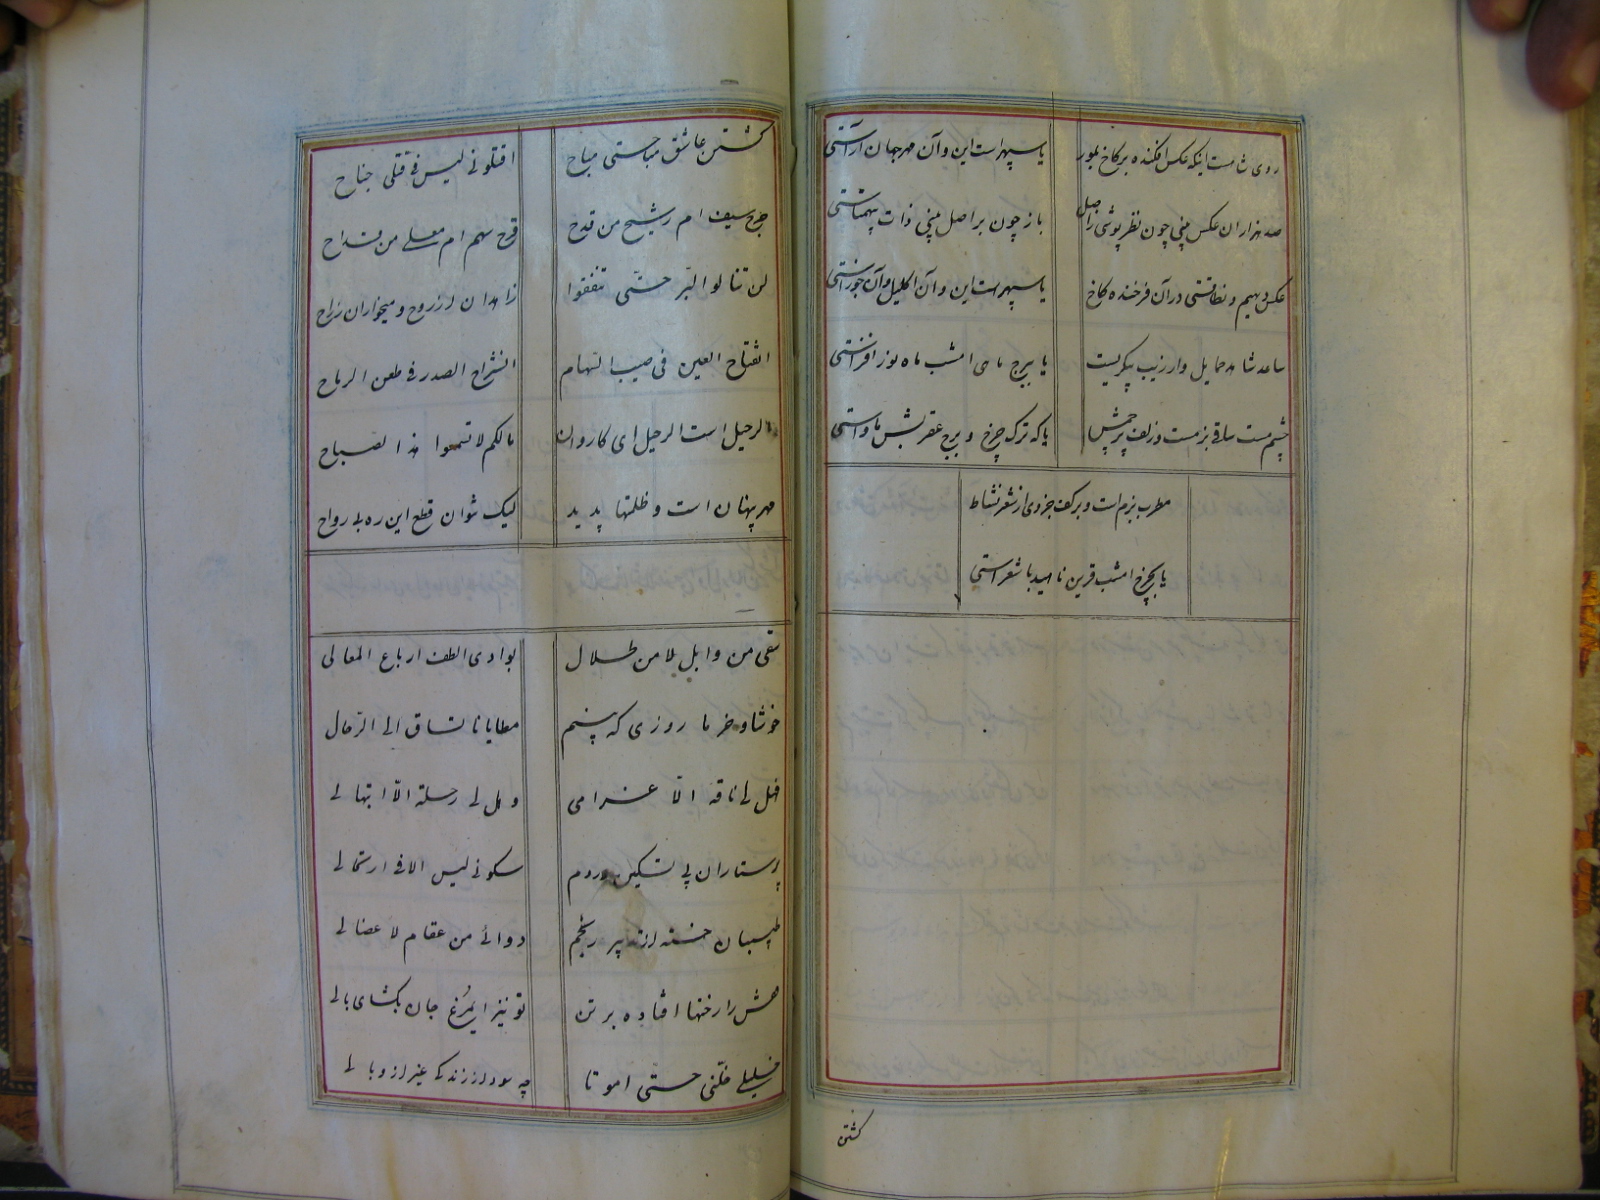 روی شاهست اینکه عکس افکنده بر کاخ بلور یا سپهر است این و آن مهر جهان آراستی
صد هزاران عکس بینی چون نظر پوشی ز اصل باز چون بر اصل بینی ذات بیهمتاستی
عکس دیهیم و نطاقستی در آن فرخنده کاخ یا سپهر است این و آن اکلیل و آن جوزاستی
ساعد شاهد حمایل وار زیب پیکریست یا ببرج ماهی امشب ماه نور افزاستی
چشم مست ساقی بزمست و زلف پر خمش یا که ترک چرخ و برج عقربش مأواستی
مطرب بزم است و بر کف جزوی از شعر نشاط
یا بچرخ امشب قرین ناهید با شعراستی
کشتن
کشتن عاشق مباحستی مباح اقتلونی لیس فی قتلی جناح
جرح سیف ام رشیح من قدح قرح سهم ام معلی من قداح
لن تنالوا البر حتی تنفقوا زاهدان از روح و میخواران ز راح
انفتاح العین فی صیب السهام انشراح الصدر فی طعن الرماح
الرحیل است الرحیل ای کاروان مالکم لا تسمعوا هذا الصباح
مهر پنهان است و ظلمتها پدید لیک نتوان قطع این ره بی رواح
سقی من وابل لا من طلال بوادی الطف ارباع المعالی
خوشا و خرما روزی که بینم مطایانا تساق الی الرحال
فهل لی ناقة الا غرامی وهل لی رحلة الا ابتهالی
پرستاران پی تسکین دردم سکونی لیس الا فی ارتحالی
طبیبان خسته از تدبیر رنجم دوائی من عقام لا عضالی
قفس را رخنها افتاده بر تن تو نیز ایمرغ جان بگشای بالی
خلیلی خلنی حتی اموتا چه سود از زندگی غیر از وبالی